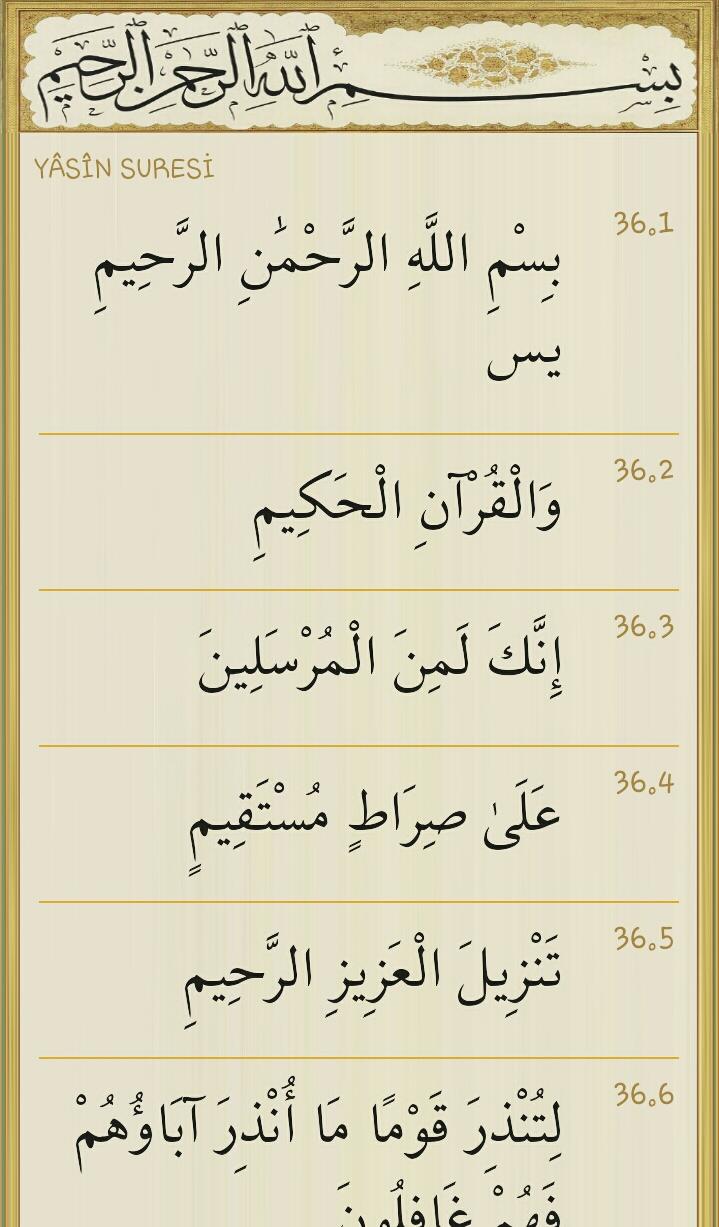 بسم الله الرحمن الرحيم
YÂSÎN SURESİ
36.1
بِسْمِ اللَّهِ الرَّحْمَٰنِ الرَّحِيمِ
يس
36.2
وَالْقُرْآنِ الْحَكِيمِ
36.3
إِنَّكَ لَمِنَ الْمُرْسَلِينَ
36.4
عَلَىٰ صِرَاطٍ مُسْتَقِيمٍ
36.5
تَنْزِيلَ الْعَزِيزِ الرَّحِيمِ
36.6
لِتُنْذِرَ قَوْمًا مَا أُنْذِرَ آبَاؤُهُمْ
فَهُمْ غَافِلُونَ